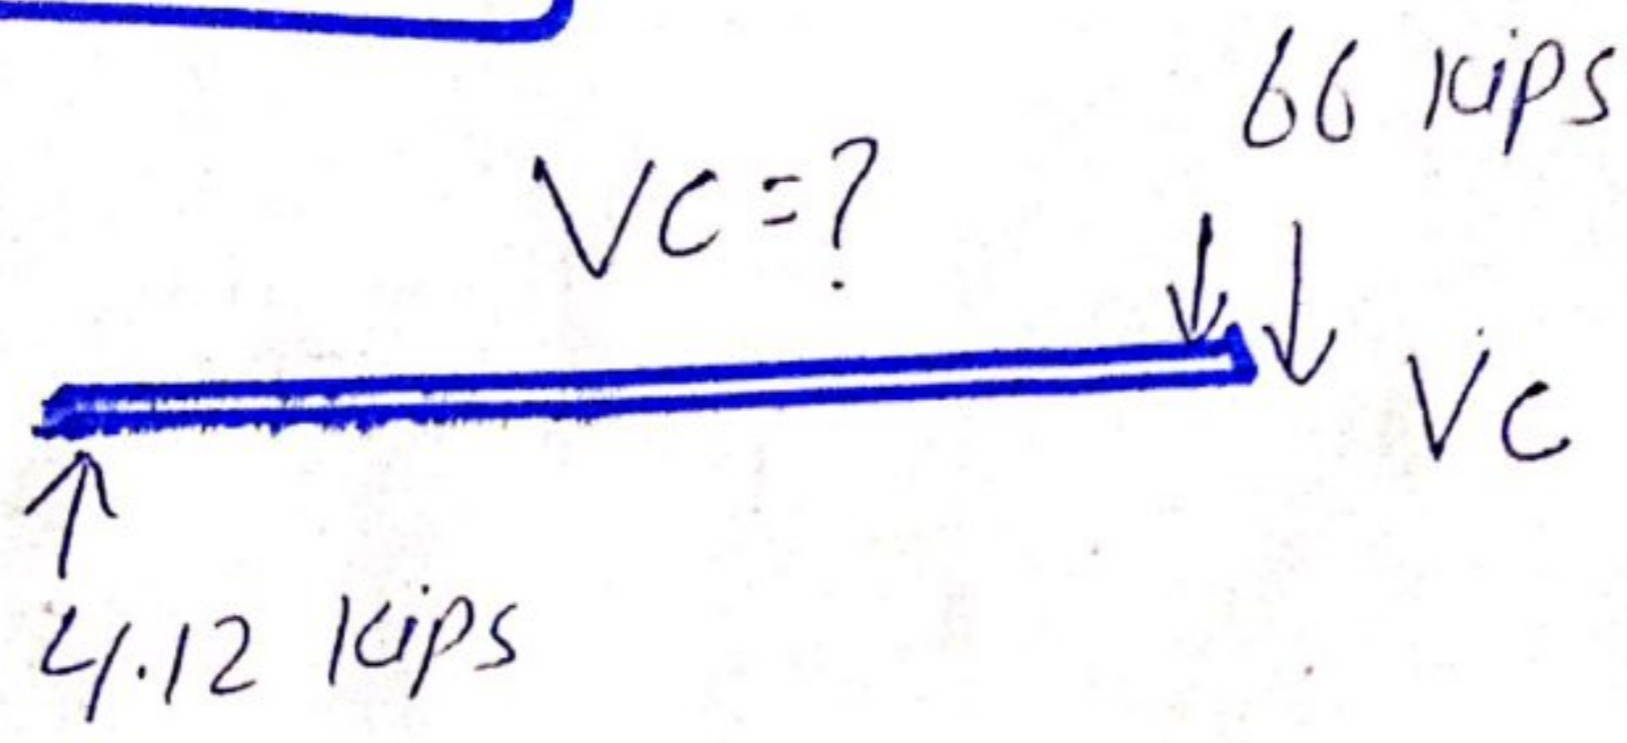 66 kips
VC=?
VC
4.12 kips